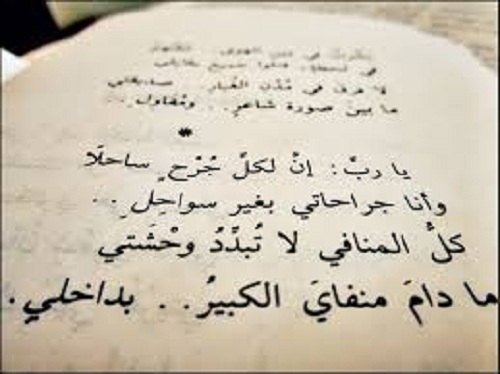 لا فرق في مُدُنِ الغُبار .. صديقتي
ما بين صورة شاعرٍ .. ومُقاول ..
*
يا ربّ: إنَّ لكلّ جُرْحٍ ساحلًا
وأنا جراحاتي بغير سواحِلِ ..
كلُّ المنافي لا تُبدِّدُ وحْشتي
ما دامَ منفايَ الكبيرُ .. بداخلي.